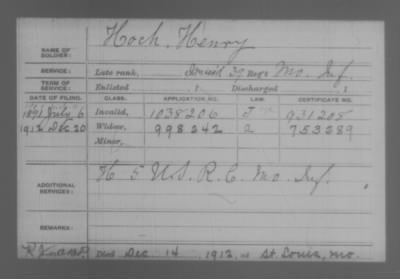 NAME OF SOLDIER: Hoch, Henry
SERVICE: Late rank, 39 Reg't Mo. Inf.
TERM OF SERVICE: Enlisted , 1 Discharged , 1
DATE OF FILING. CLASS. APPLICATION NO. LAW. CERTIFICATE NO.
1891 July 6 Invalid, 1038206 J 931208
1912 Dec 20 Widow, 998242 2 753289
Minor,
ADDITIONAL SERVICES: H 5 U.S. R.C. Mo. Inf.
REMARKS:
Died Dec 14, 1912, at St. Louis, Mo.